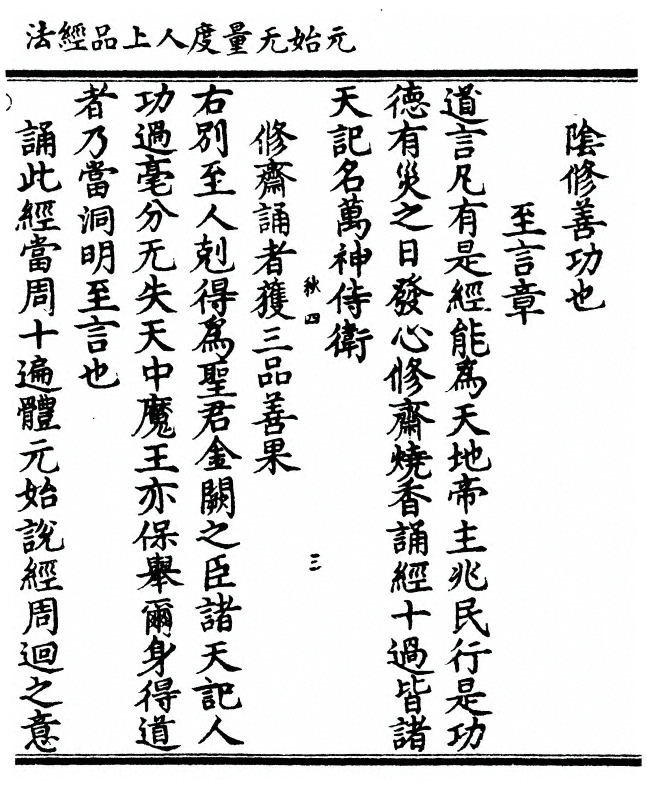 元始无量度人上品經法
陰修善功也
至言章
道言凡有是經能為天地帝主兆民行是功
德有災之日發心修齋燒香誦經十過皆諸
天記名萬神侍衛
秋四
三
修齋誦者獲三品善果
右別至人剋得為聖君金闕之臣諸天記人
功過毫分无失天中魔王亦保舉爾身得道
者乃當洞明至言也
誦此經當周十遍體元始說經周迴之意